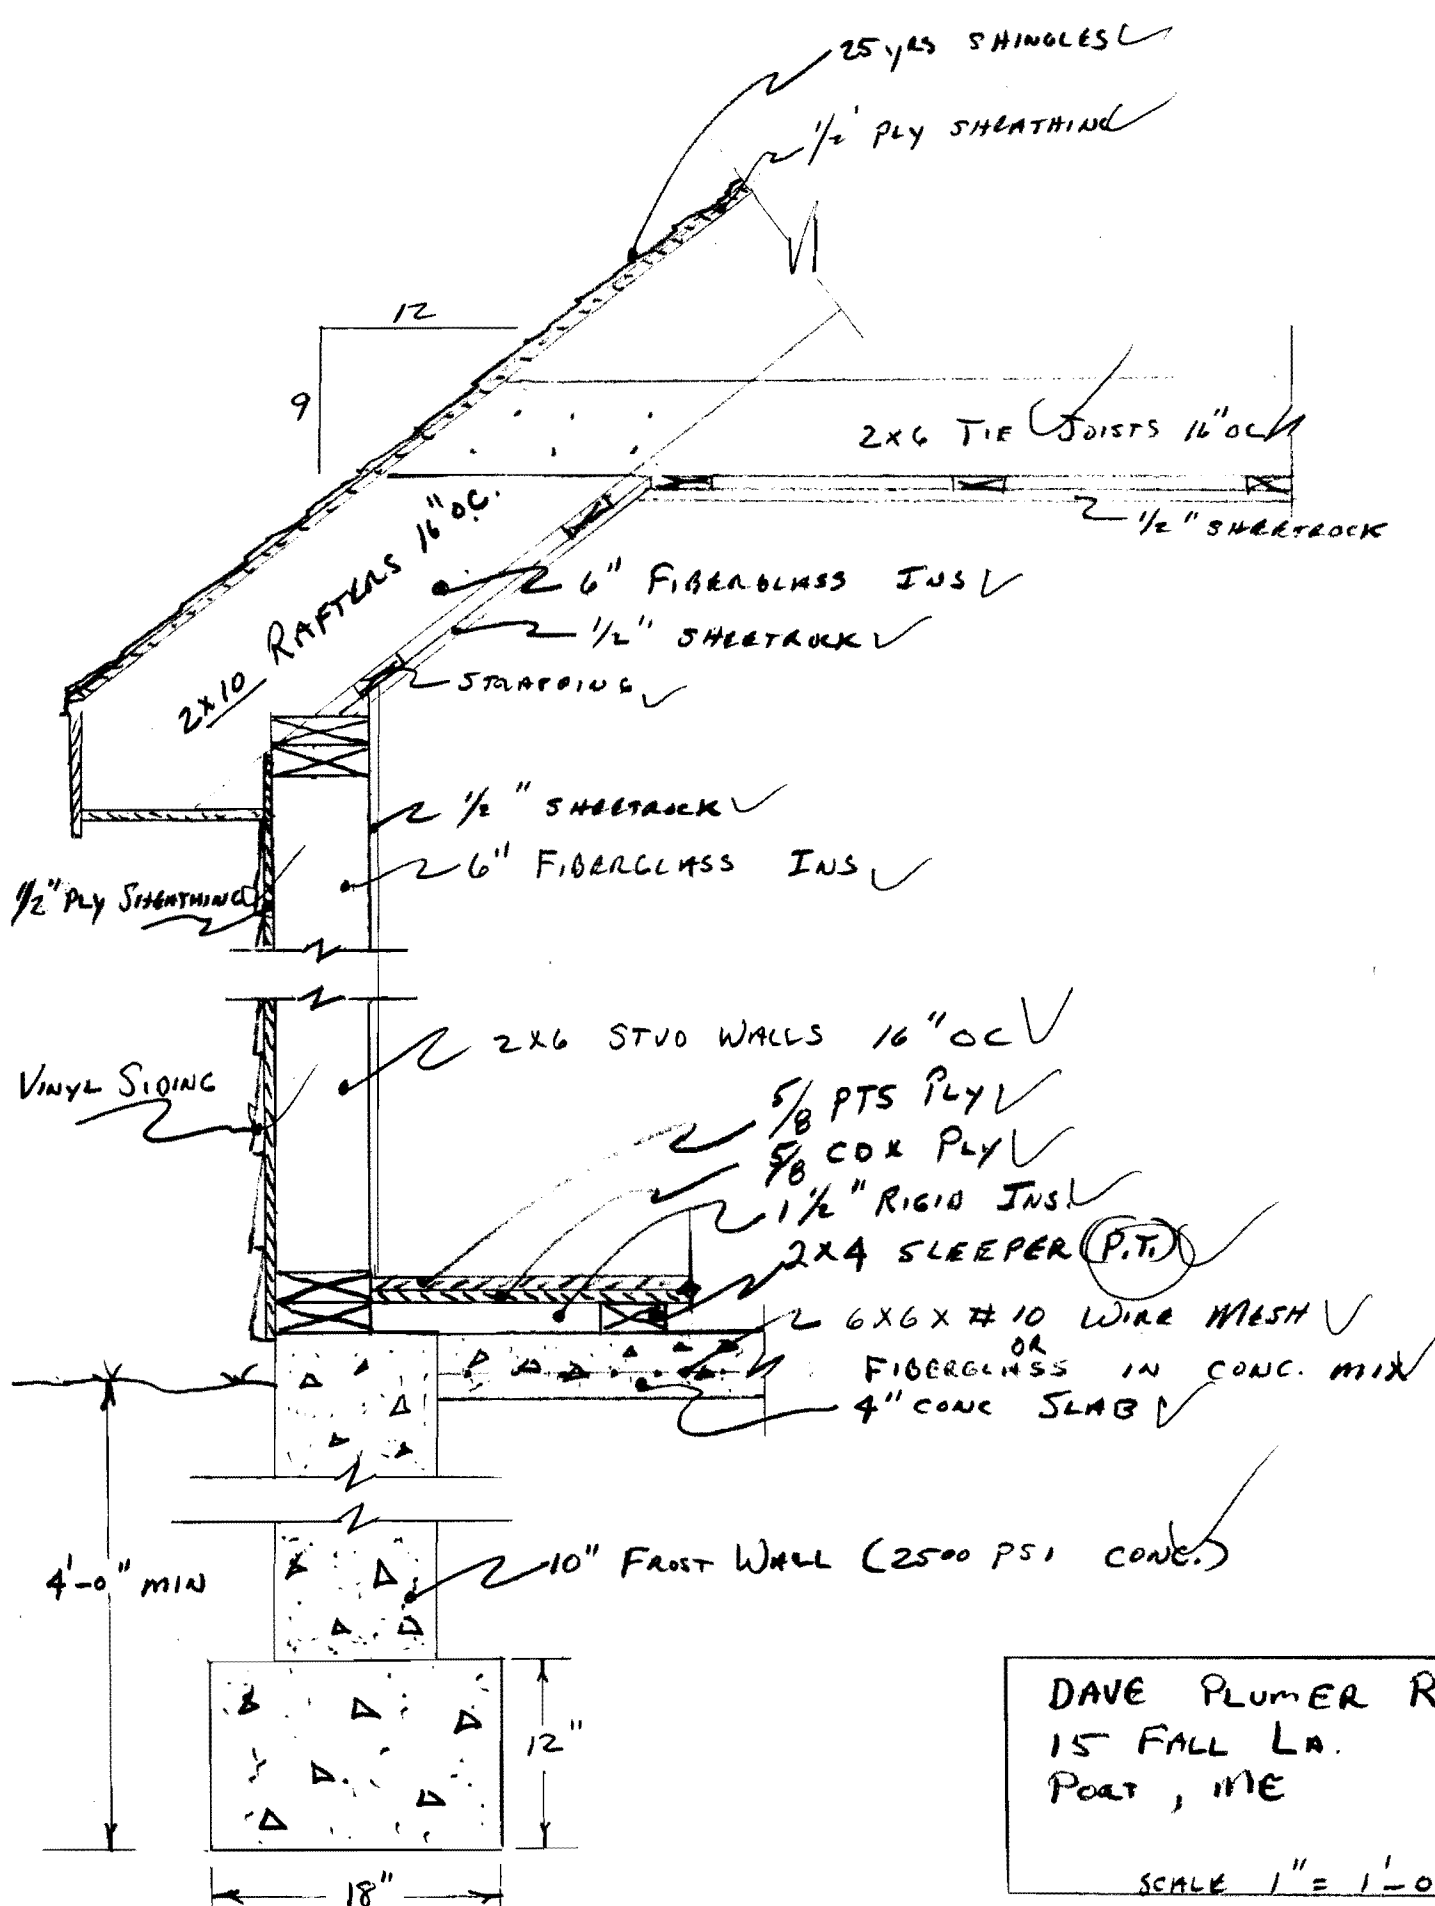 25 yrs SHINGLES
1/2' PLY SHEATHING
12
9
2x6 TIE JOISTS 16" OC
1/2" SHEETROCK
2x10 RAFTERS 16" O.C.
6" FIBERGLASS INS
1/2" SHEETROCK
STRAPPING
1/2" SHEETROCK
6" FIBERGLASS INS
1/2" PLY SHEATHING
2x6 STUD WALLS 16" OC
VINYL SIDING
5/8 PTS PLY
5/8 CDX PLY
1 1/2" RIGID INS
2x4 SLEEPER (P.T.)
6x6x #10 WIRE MESH
OR
FIBERGLASS IN CONC. MIX
4" CONC SLAB
10" FROST WALL (2500 PSI CONC.)
4'-0" MIN
12"
18"
DAVE PLUMER R
15 FALL LA.
PORT, ME
SCALE 1" = 1'-0